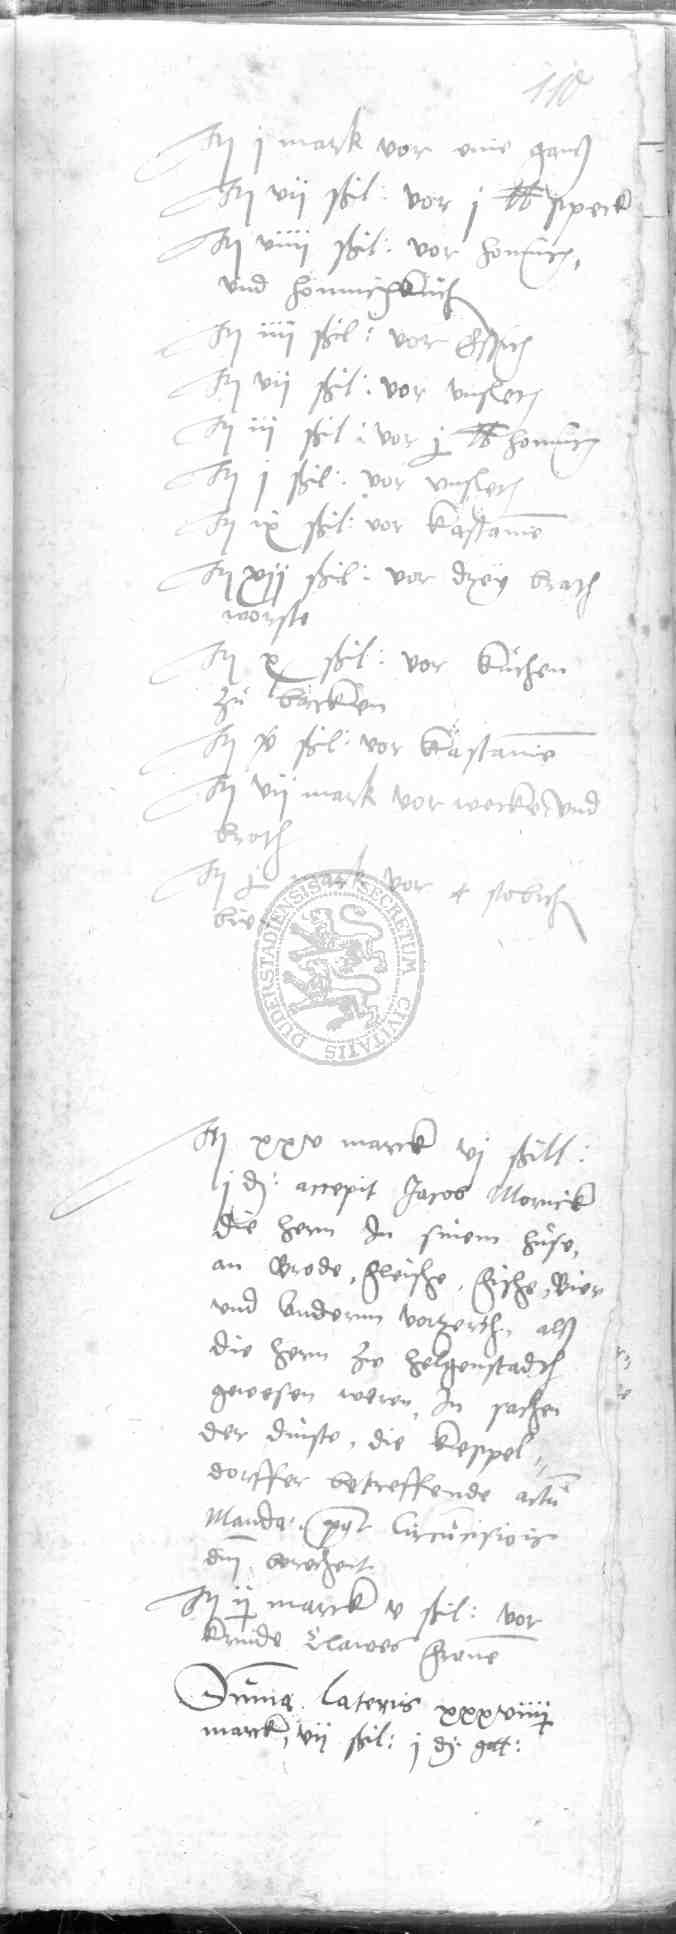 110
It j mark vor eine ganß
It vij ßil: vor j lb speck
It viiij ßil: vor honnich,
vnd honnichkuch
It iiij ßil: vor Essich
It vij ßil: vor vnslet
It iij ßil: vor j lb honnich
It j ßil: vor vnslet
It ix ßil: vor kastanie
It xvij ßil: vor drey brath
worste
It x ßil: vor kuchen
zu backen
It ßil: vor kastanie
It vij mark vor wecke vnd
broth
It mark vor 4 stobich
bier
SECRETUM CIVITATIS DUDERSTADIENSIS
It xxv marck vj ßill:
j d: accepit Jacob Mornick
die hern In sinem huse,
an Brode, fleische, fische, Bier
vnd Anderm vortzerth, alß
die hern zu helgenstadth
gewesen weren, In sachen
der dinste, die keppel-
dorffer betreffende actu
Manda: post Circucisiois
dni berechent
It ij marck v ßil: vor
krude Clawes
Suma lateris xxxviiij
marck, vij ßil: j d: gtt: